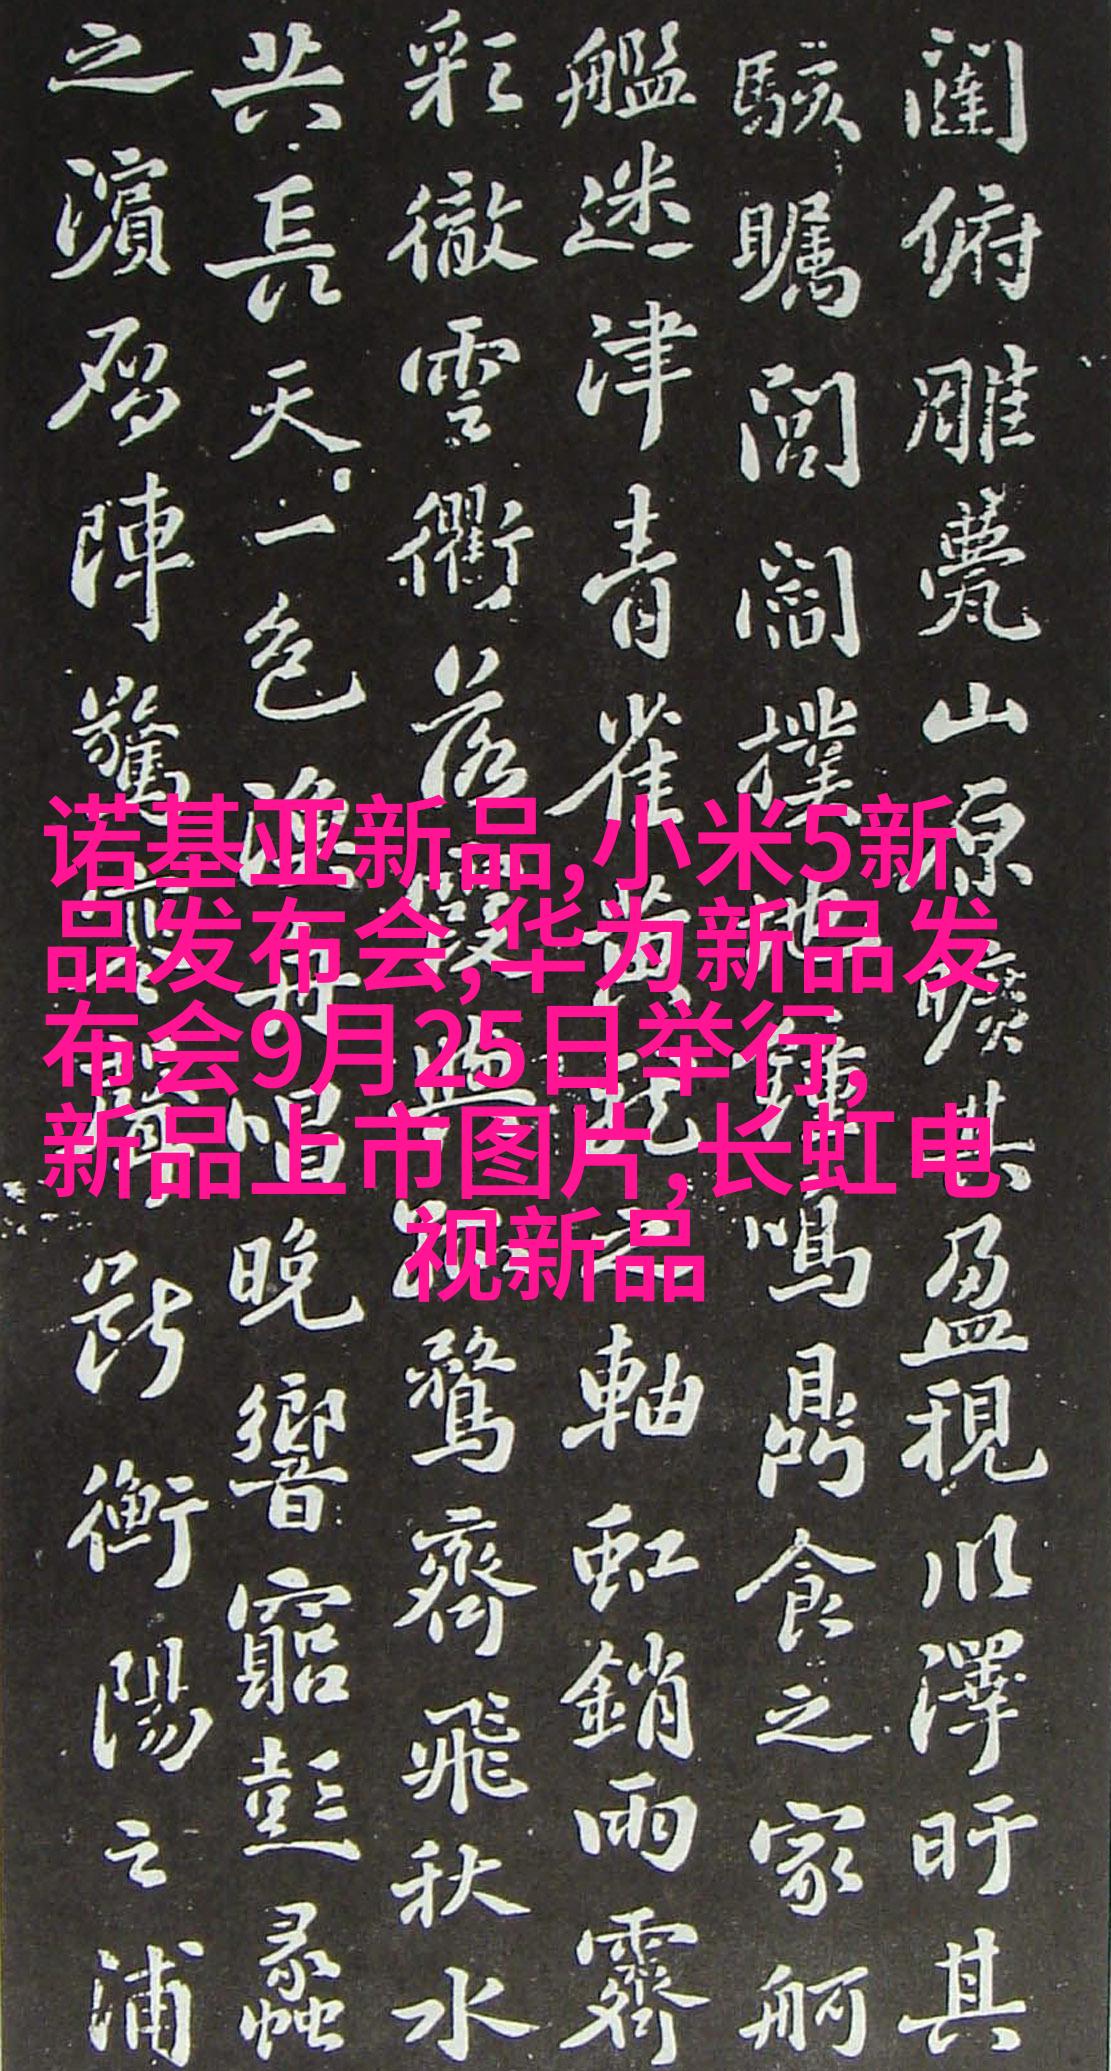 闥俯雕甍山原曠其盈視川澤盱其
駭矚閭閻撲地鍾鳴鼎食之家舸
艦迷津青雀黃龍之軸虹銷雨霽
彩徹雲衢落霞與孤鶩齊飛秋水
共長天一色漁舟唱晚響窮彭蠡
之濱鴈陣驚寒聲斷衡陽之浦
诺基亚新品,小米5新
品发布会,华为新品发
布会9月25日举行,
新品上市图片,长虹电
视新品